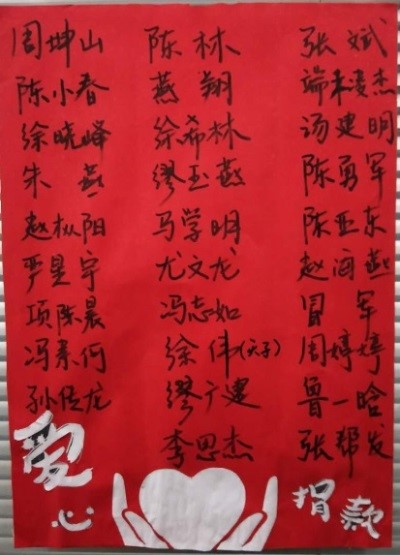 周坤山 陈林 张斌
陈小春 燕翔 端木凌杰
徐晓峰 徐希林 汤建明
朱燕 缪玉燕 陈勇军
赵枞阳 马学明 陈亚东
严昰宇 尤文龙 赵海燕
项陈晨 冯志如 冒军
冯素何 徐伟(天子) 周婷婷
孙佐龙 缪广建 鲁一晗
李思杰 张帮发
爱心 捐款